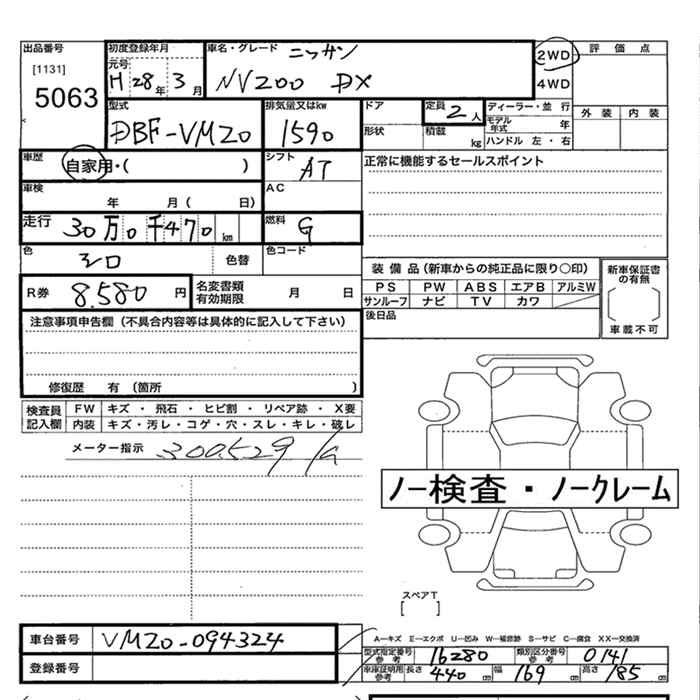 出品番号
[1131]
5063
初度登録年月
元号
H 28年 3月
車名・グレード
ニッサン
NV200 DX
2WD
4WD
評価点
外装 内装
型式
DBF-VM20
排気量又はkw
1590
ドア
形状
定員
2人
積載
kg
ディーラー・並行
モデル年式 年
ハンドル 左・右
車歴
自家用・( )
シフト
AT
正常に機能するセールスポイント
車検
年 月( 日)
AC
走行
30万0千470km
燃料
G
色
シロ
色替
色コード
R券
8.580円
名変書類
有効期限
月 日
装備品(新車からの純正品に限り○印)
PS PW ABS エアB アルミW
サンルーフ ナビ TV カワ
新車保証書の有無
車載不可
後日品
注意事項申告欄(不具合内容等は具体的に記入して下さい)
修復歴 有 (箇所 )
検査員記入欄
FW キズ・飛石・ヒビ割・リペア跡・X要
内装 キズ・汚レ・コゲ・穴・スレ・キレ・破レ
メーター指示
300.529
ノー検査・ノークレーム
スペアT
[ ]
車台番号
VM20-094324
登録番号
A―キズ E―エクボ U―凹み W―補修跡 S―サビ C―腐食 XX―交換済
型式指定番号 参考
16280
類別区分番号 参考
0141
車庫証明用 参考
長さ 440cm 幅 169cm 高さ 185cm